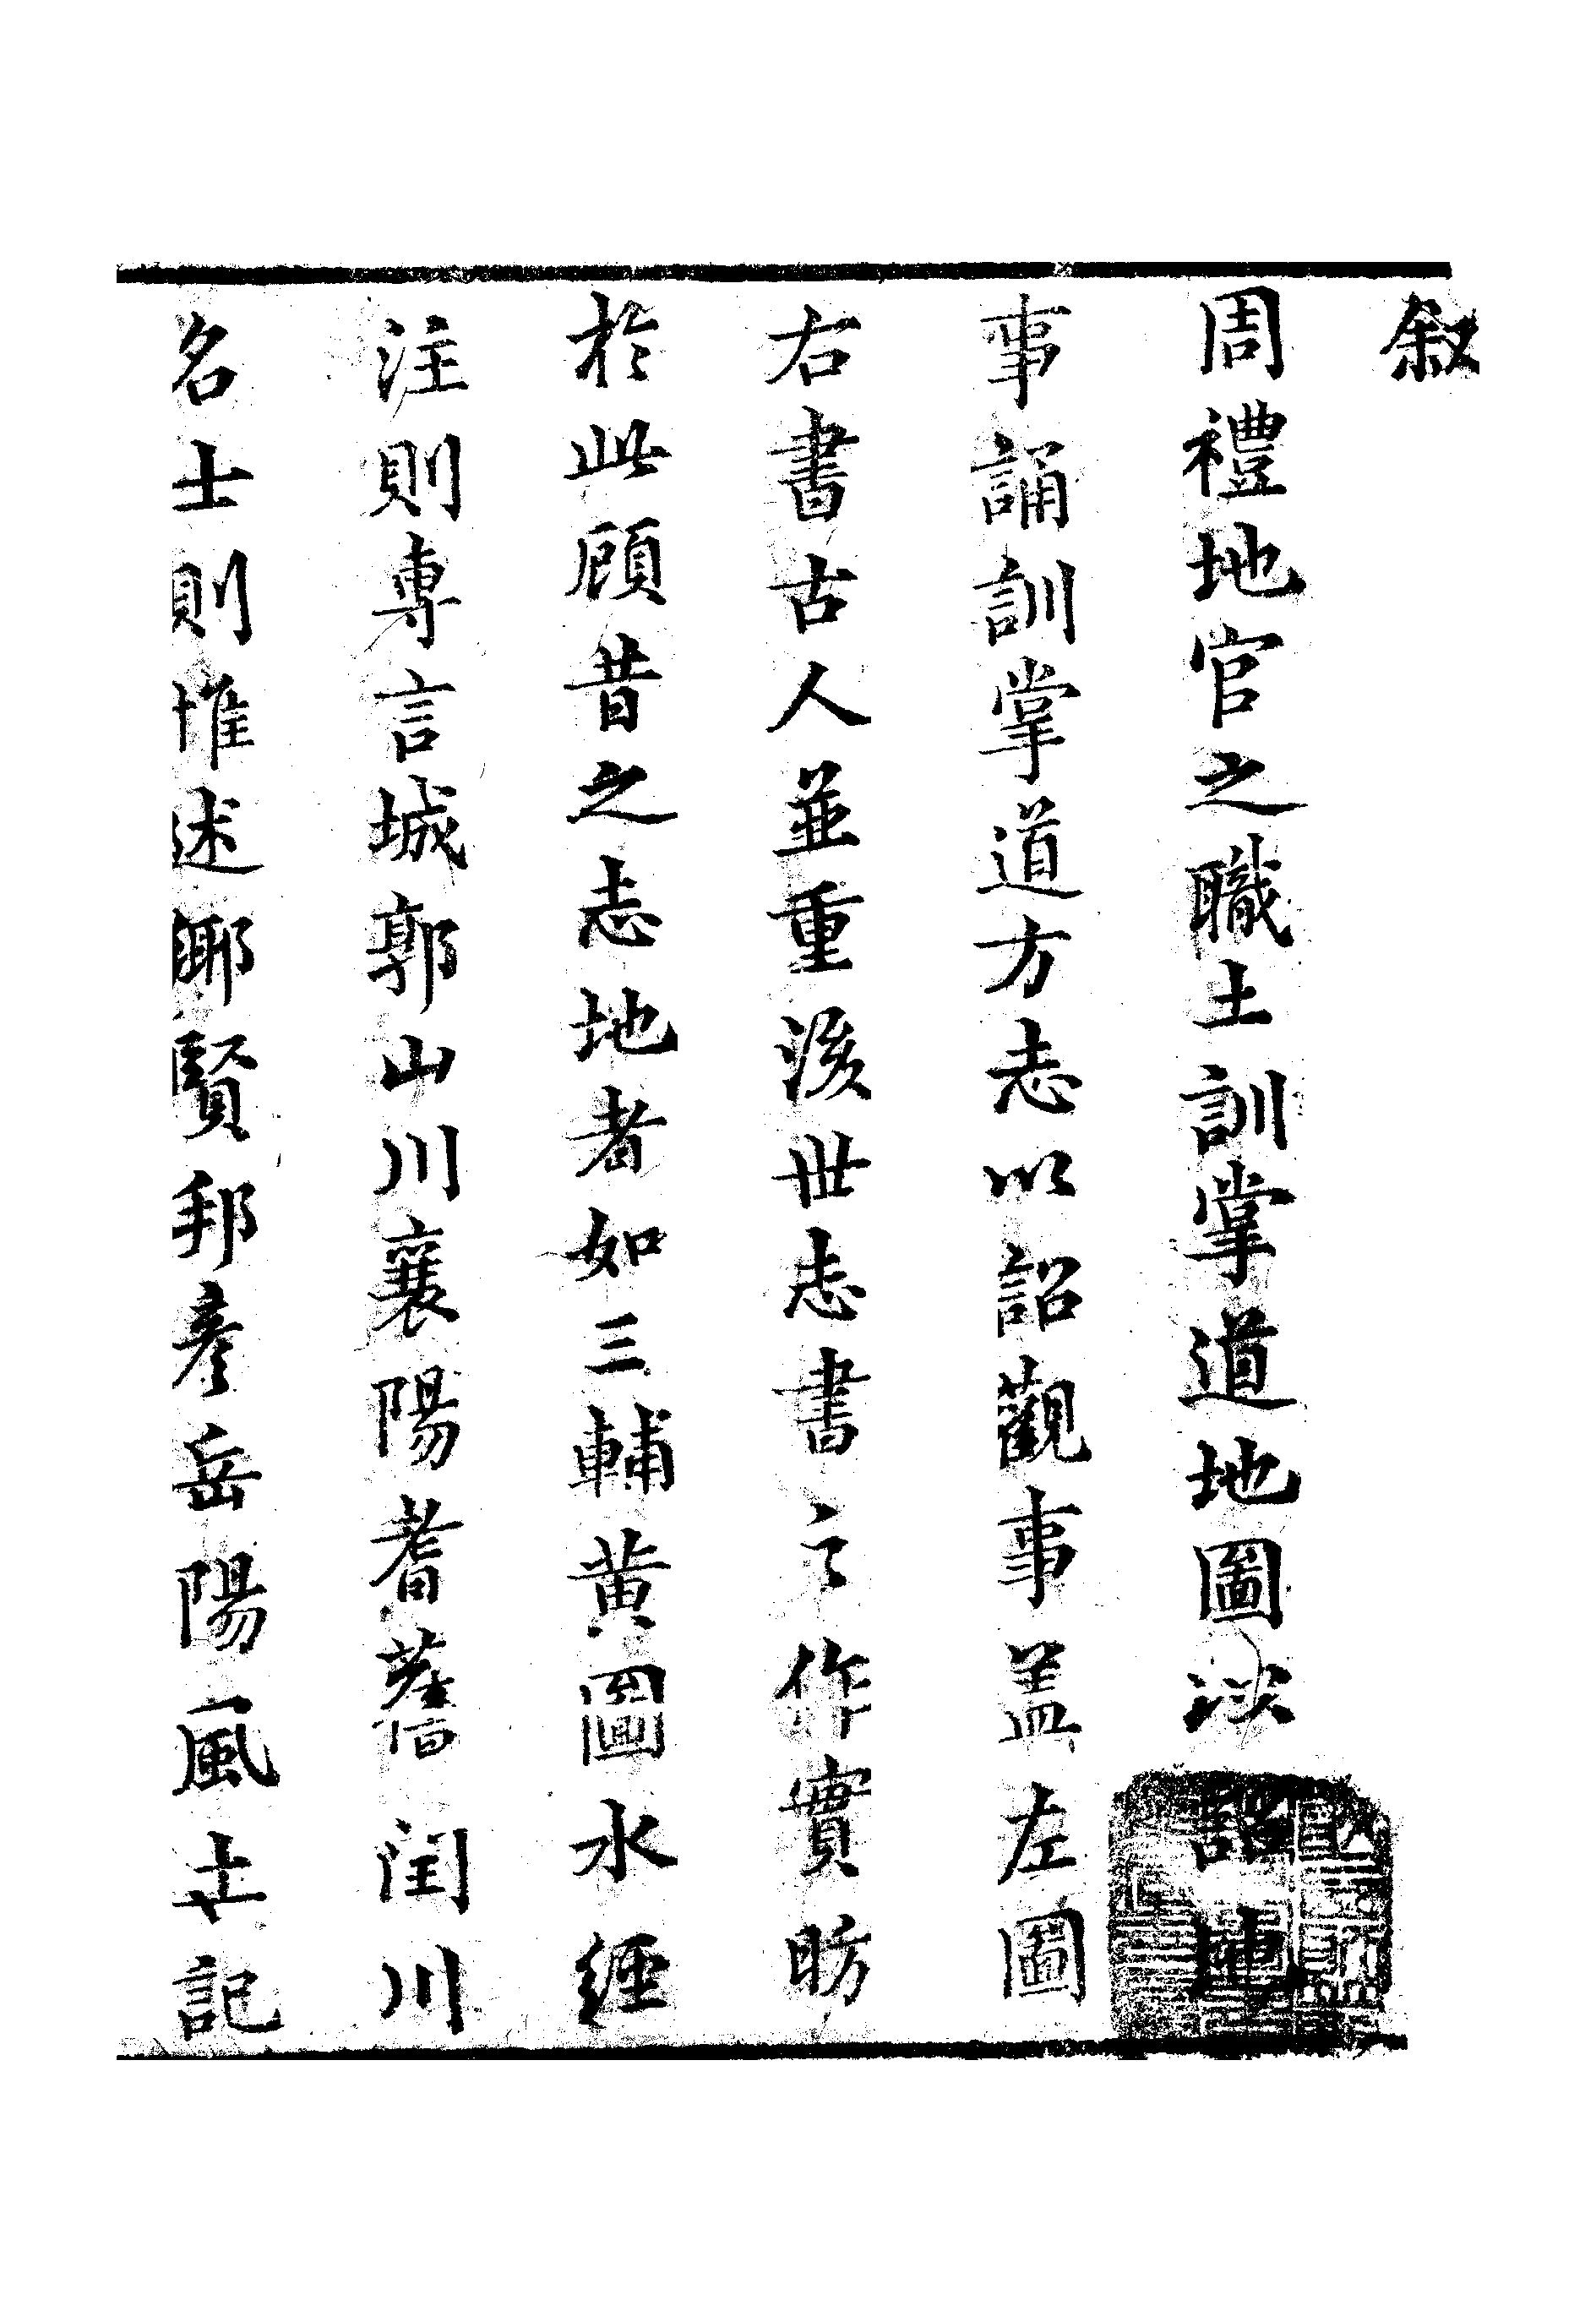 叙
周禮地官之職土訓掌道地圖以詔地
事誦訓掌道方志以詔觀事蓋左圖
右書古人並重後世志書之作實昉
於此顧昔之志地者如三輔黃圖水經
注則專言城郭山川襄陽耆舊閏川
名士則惟述鄉賢邦彥岳陽風土記